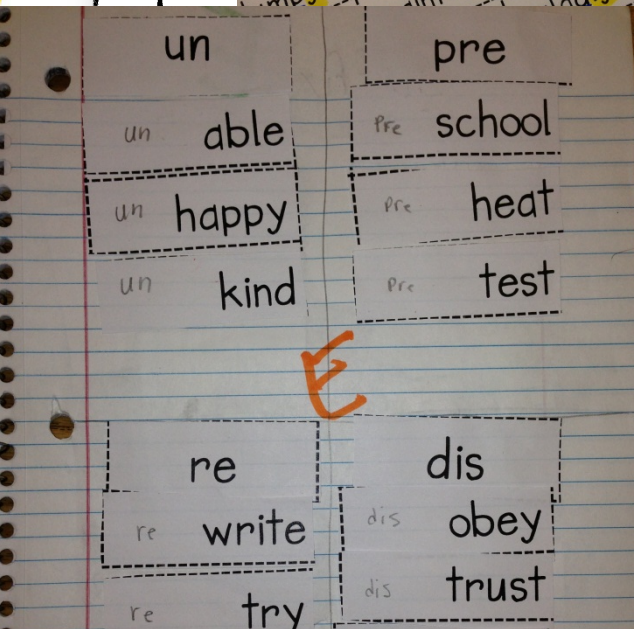 un
un able
un happy
un kind
pre
Pre school
Pre heat
Pre test
E
re
re write
re try
dis
dis obey
dis trust